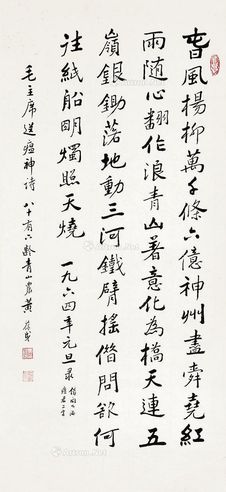 春風楊柳萬千條六億神州盡舜堯紅
雨隨心翻作浪青山著意化為橋天連五
嶺銀鋤落地動三河鐵臂搖借問欲何
往紙船明燭照天燒 一九六四年元旦录
借問下落瘟君二字
毛主席送瘟神诗 八十有六齡青山農黃葆戉